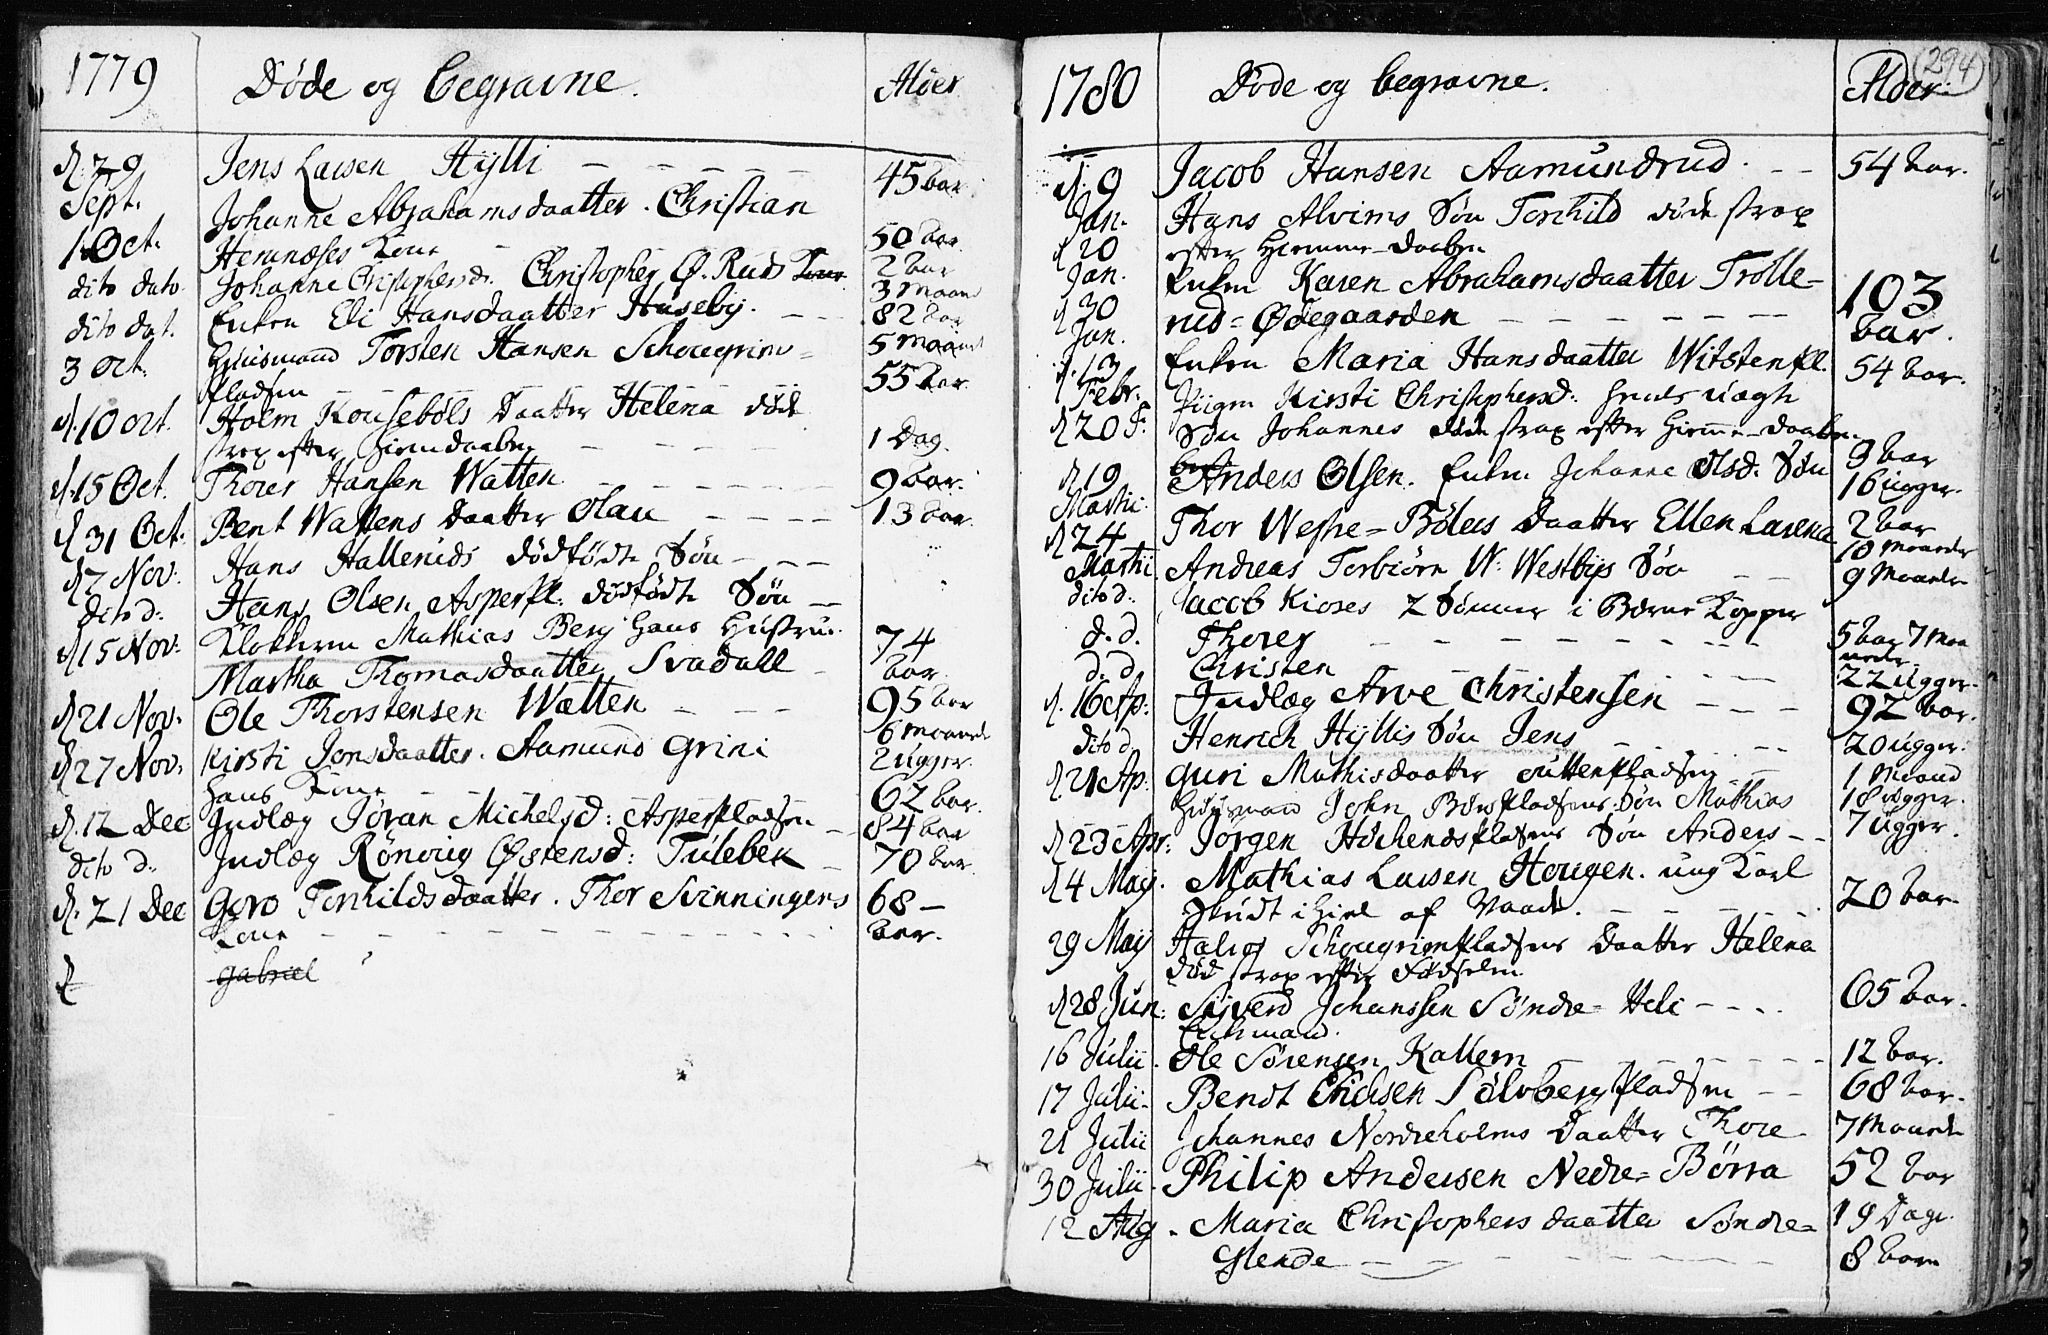 1779 Døde og begravne. Alder
d. 29 Jens Larsen Hÿlli 45 aar
Sept. Johanne Abrahamsdaatter. Christian
1 Oct. Hernæses Kone 50 aar.
dito dato. Johanne Cristophersdr. Christopher Ø. Ruds Kone. 2 aar 3 Maan
dito dat. Enken Eli Hansdaatter Huseby. 82 aar
3 Oct. Huusmand Torsten Hansen Schougrim= 5 maan
pladsen 55 aar.
d. 10 Oct. Holm Kouseböls Daatter Helena død
strax efter Hiemdaaben 1 Dag.
d. 15 Oct. Thorer Hansen Watten 9 aar.
d 31 Oct. Bent Wattens Daatter Olau 13 aar.
d 7 Nov. Hans Halleruds dødfødte Søn
dito d: Hans Olsen Asperpl. dødfødte Søn
d 15 Nov: Klokkeren Mathias Berg hans Hustrue 74
Martha Thomasdaatter Svadall aar.
d 21 Nov. Ole Thorstensen Watten 95 aar 6 maaned
d 27 Nov. Kirsti Jonsdaatter. Aamund Grini 2 uger
hans Kone 62 aar.
d. 12 Dec Indlæg Jøran Michelsd: Asperpladsen 84 aar
dito d: Indlæg Rönoug Østensd: Tulebek 70 aar.
d. 21 Dec Goro Torchildsdaatter. Thor Svenningens 68
Kone aar.
d gabriel
(294)
1780 Døde og begravne. Alder.
d. 9 Jacob Hansen Aamundrud. 54 aar.
Jan. Hans Alvims Søn Torchild døde strax
d 20 efter Hiemme-Daaben
Jan. Enken Karen Abrahamsdaatter Trolle-
d 30 rud=Ødegaarden 103
Jan. aar.
d. 13 Enken Maria Hansdaatter Witstenpl. 54 aar.
Febr. Piigen Kirsti Christophersd: hendes uægte
d 20 F. Søn Johannes døde strax efter Hieme-Daaben
d 19 Anders Olsen. Enken Johanne Olsd. Søn 9 aar 16 uger.
Martii. Thor Westre=Bölers Daatter Ellen Larena 2 aar
d 24 10 Maaneder
Martii Andreas Torbiörn W. Westbÿs Søn 9 Maander
dito d. Jacob Kioses 2 Sønner i Børne Kopper
d. d. Thorer 5 aar 7 Maaneder
d. d. Christen 22 uger
d. 16 Ap: Indlæg Arve Christensen 92 aar.
dito d. Henrich Hÿllis Søn Jens 20 uger.
d 21 Ap: Guri Mathisdaatter Duttenpladsen 1 Maand
Huusmand John Börspladsens Søn Mathias 18 uger.
d 23 Apr: Jörgen Höchendspladsens Søn Anders 7 uger.
d 4 Maÿ. Mathias Larsen Hougen. ung Karl
skudt ihiel af Vaade. 20 aar.
29 Maÿ Halvor Schougrimpladsens Daatter Helena
død strax efter Fødselen.
d 28 Jun: Sÿverd Johanssen Söndre-Heli 65 aar.
16 Julii. Ole Sörensen Kallern 12 aar.
17 Julii. Bendt Erichsen Sølvbergspladsen 68 aar.
21 Julii Johannes Nordreholms Daatter Thore 7 Maaneder
30 Julii. Philip Andersen Nedre=Børra 52 aar
12 Aug. Maria Christophersdaatter Söndre= 19 Dage
Elende 8 aar